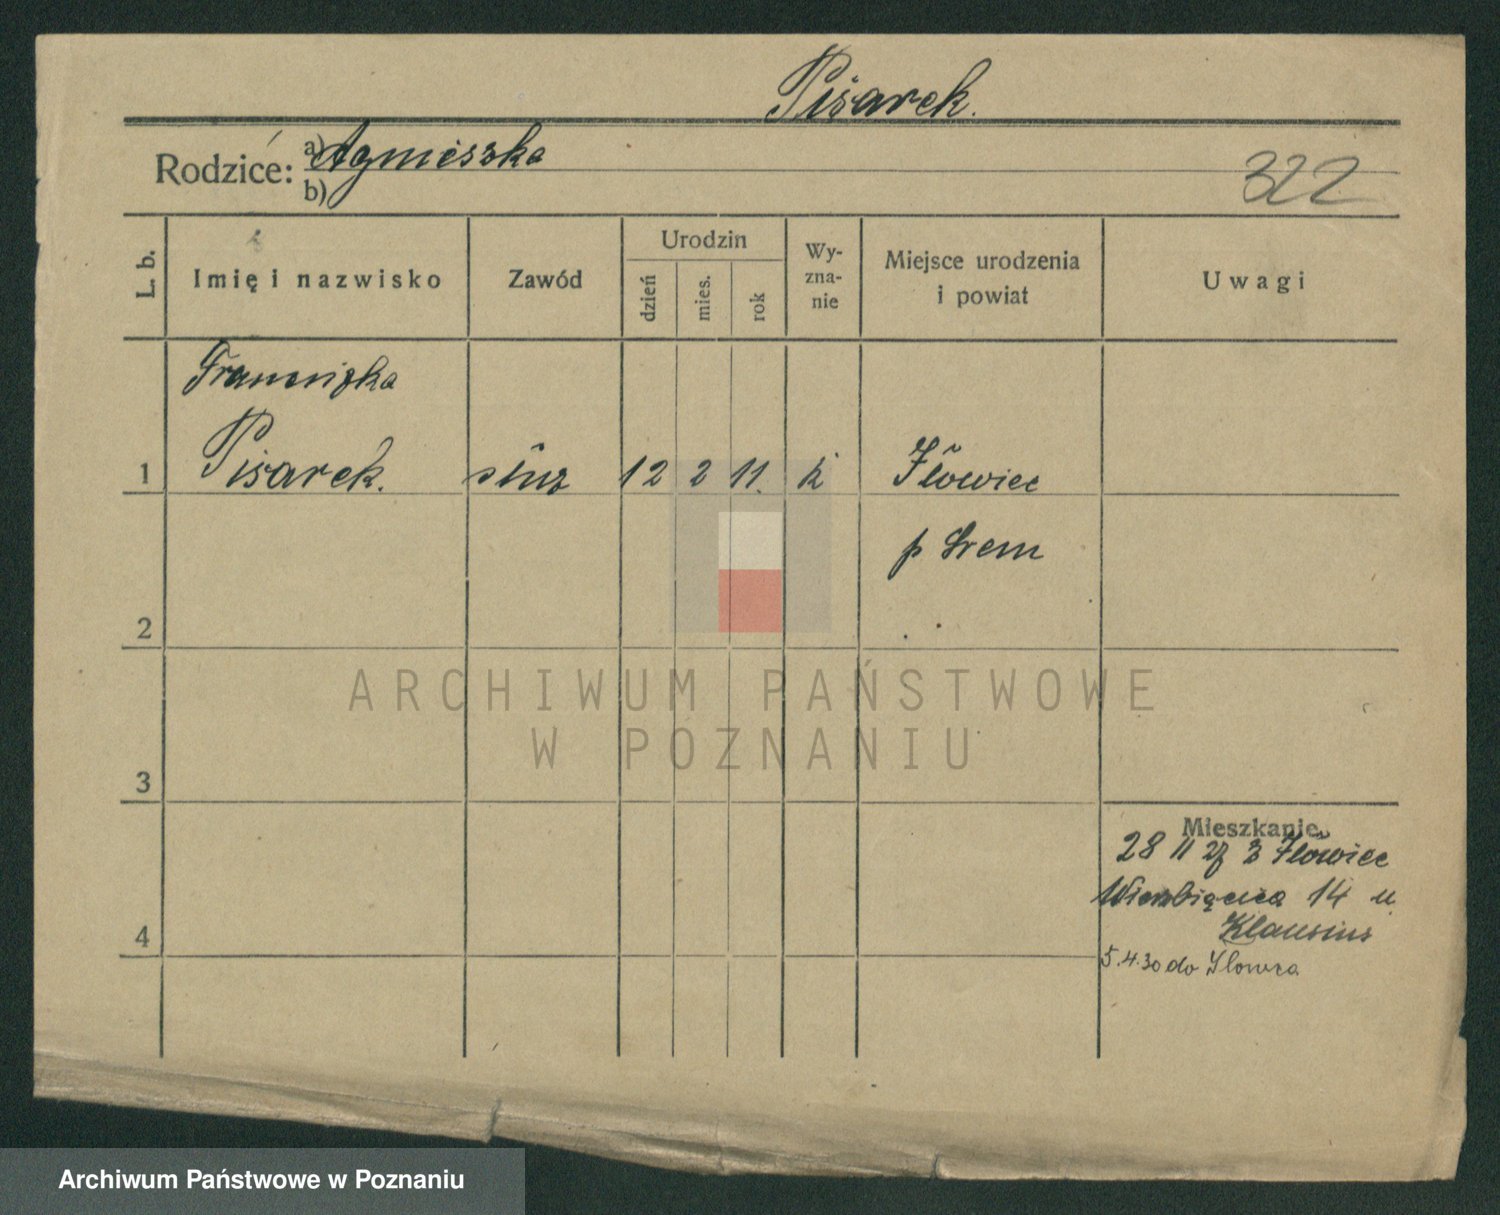 Pisarek.
Rodzice: a) Agnieszka
b)
322
L. b.
Imię i nazwisko
Zawód
Urodzin
dzień
mies.
rok
Wy-
zna-
nie
Miejsce urodzenia
i powiat
Uwagi
Franciszka
1 Pisarek. służ 12 2 11. k Iłowiec
p Śrem
2
ARCHIWUM PAŃSTWOWE
W POZNANIU
3
Mieszkanie
28 11 27 z Iłowiec
Wierzbięcice 14 u
Klausius
4
5.4.30 do Iłowca
Archiwum Państwowe w Poznaniu